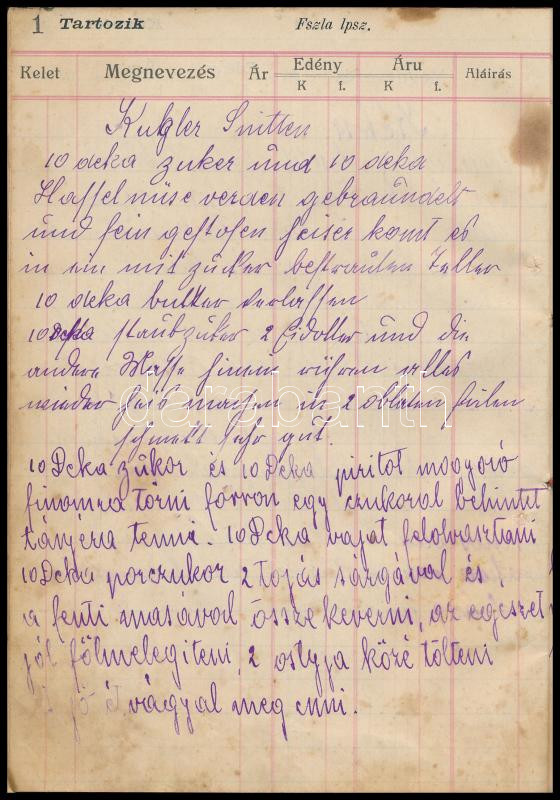 1 Tartozik Fszla lpsz.
Kelet Megnevezés Ár Edény Áru Aláirás
K f. K f.
Kugler Snitten
10 deka zuker und 10 deka
Hasselnüse verden gebraundelt
und fein gestosen heiser komt es
in ein mit zuker bestrauten Teller
10 deka butter verlassen
10 Deka staubzuker 2 Eidotter und die
andere Masse hinein rühren alles
wieder heis machen in 2 oblaten fülen
schmekt sehr gut.
10 Deka zukor és 10 Deka piritot mogyoró
finomra törni forron egy czukoral behintet
tányéra tenni. 10 Deka vajat felolvasztani
10 Deka porczukor 2 tojás sárgával és
a fenti masával összekeverni, az egeszet
jól fölmelegiteni, 2 ostyja közé tölteni
jó étvágyal meg enni.
darabanth